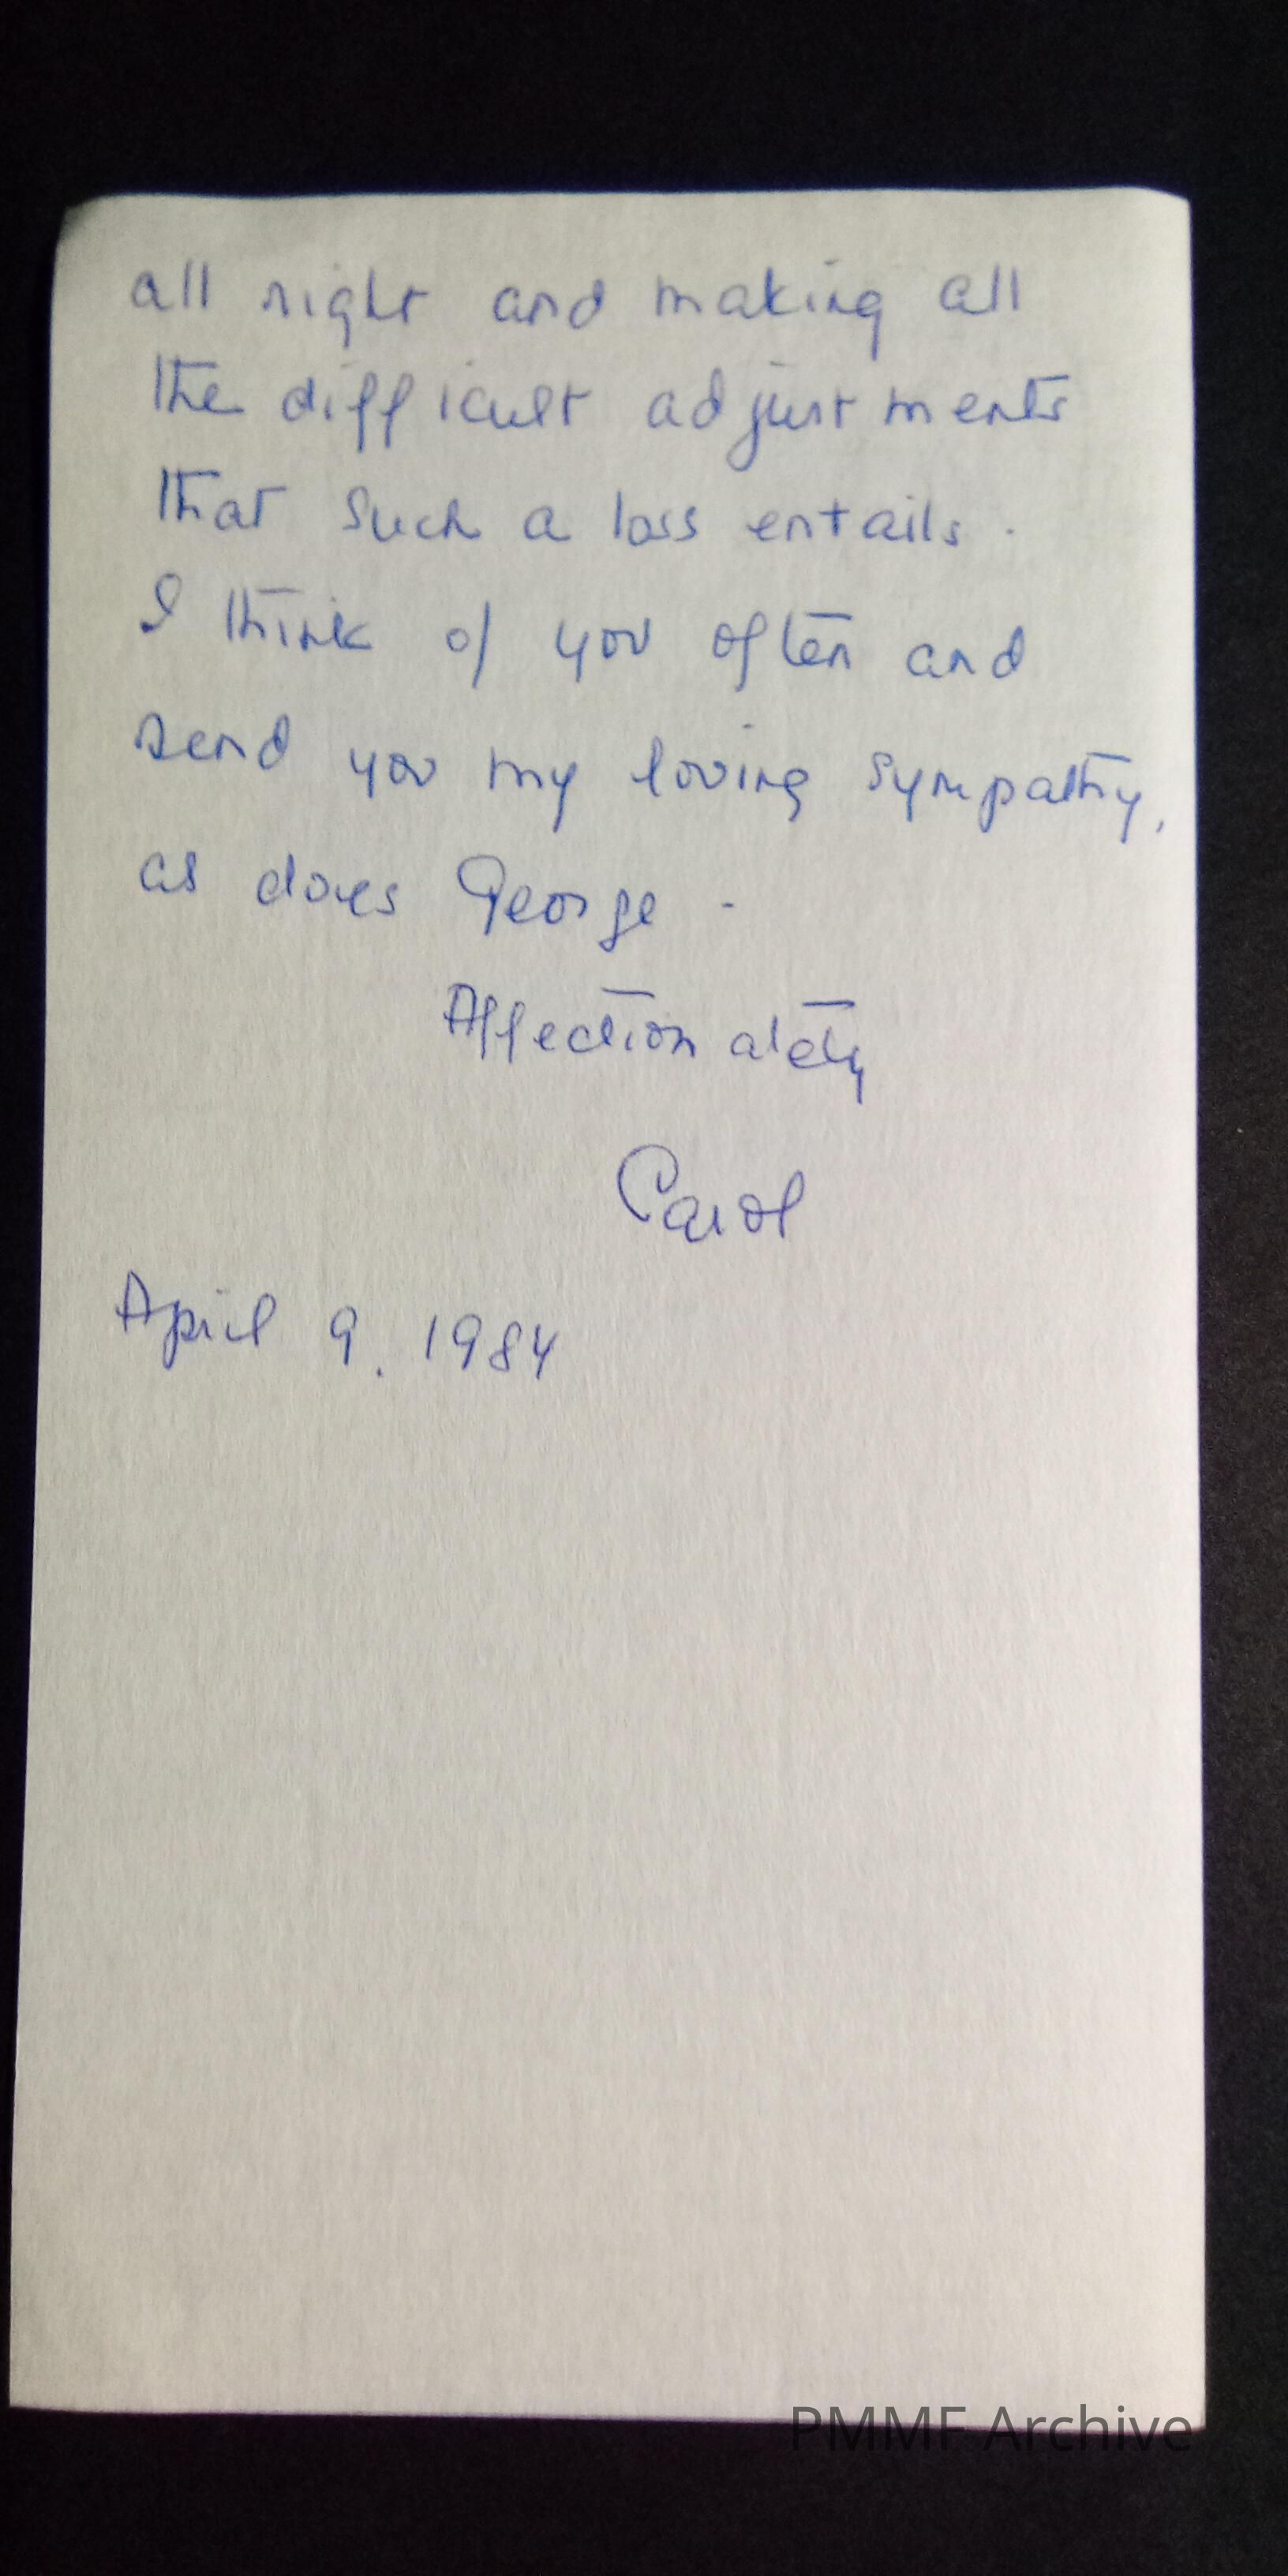 all right and making all
the difficult adjustments
that such a loss entails.
I think of you often and
send you my loving sympathy,
as does George.
Affectionately
Carol
April 9. 1984
PMMF Archive